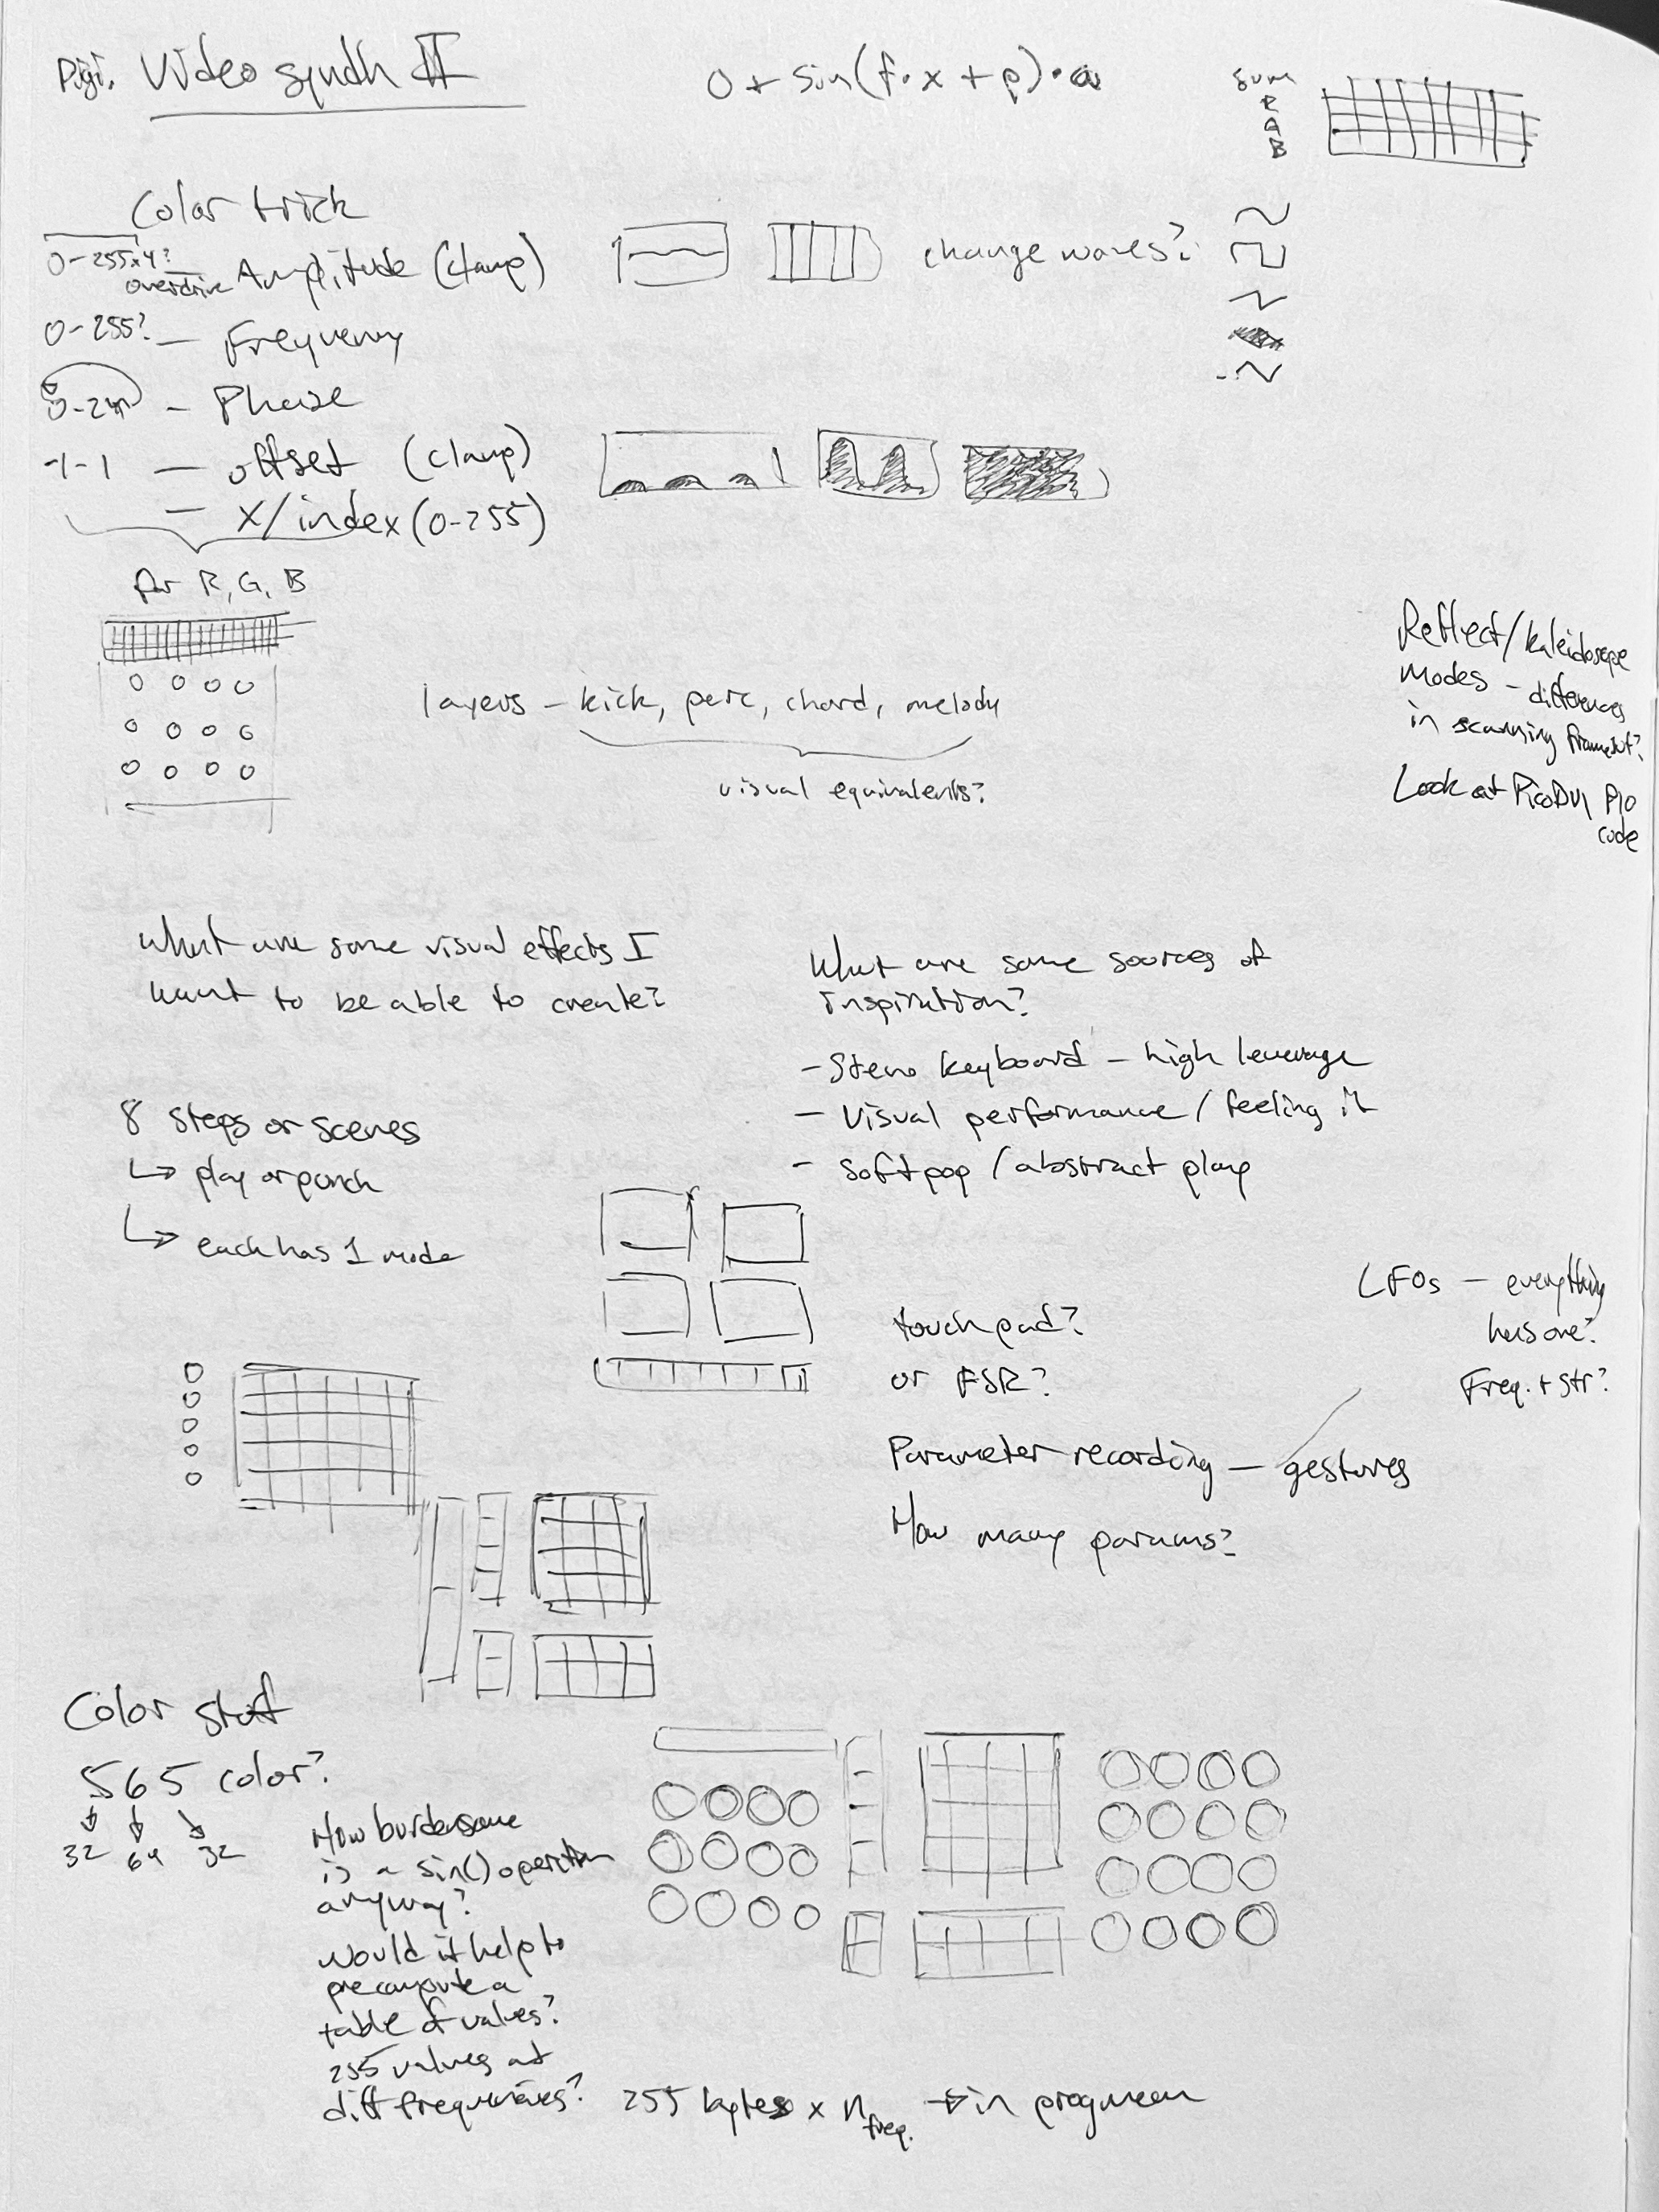 Digi. Video synth II
o + sin(f·x + p)·a
sum
R
G
B
Color trick
0-255x4?
overdrive
Amplitude (clamp)
change waves?
0-255? — Frequency
0-2π — Phase
-1-1 — offset (clamp)
— x/index (0-255)
for R, G, B
Reflect/kaleidoscope
modes - differences
in scanning framebuf?
Look at PicoDVI PIO
code
layers — kick, perc, chord, melody
visual equivalents?
What are some visual effects I
want to be able to create?
What are some sources of
inspiration?
- Steno keyboard — high leverage
- Visual performance / feeling it
- Softpop / abstract play
8 steps or scenes
↳ play or punch
↳ each has 1 mode
LFOs — everything
has one?
Freq. + str?
touch pad?
or FSR?
Parameter recording — gestures
How many params?
Color stuff
565 color?
32 64 32
How burdensome
is a sin() operation
anyway?
Would it help to
precompute a
table of values?
255 values at
diff frequencies? 255 bytes x n freq. → in progmem